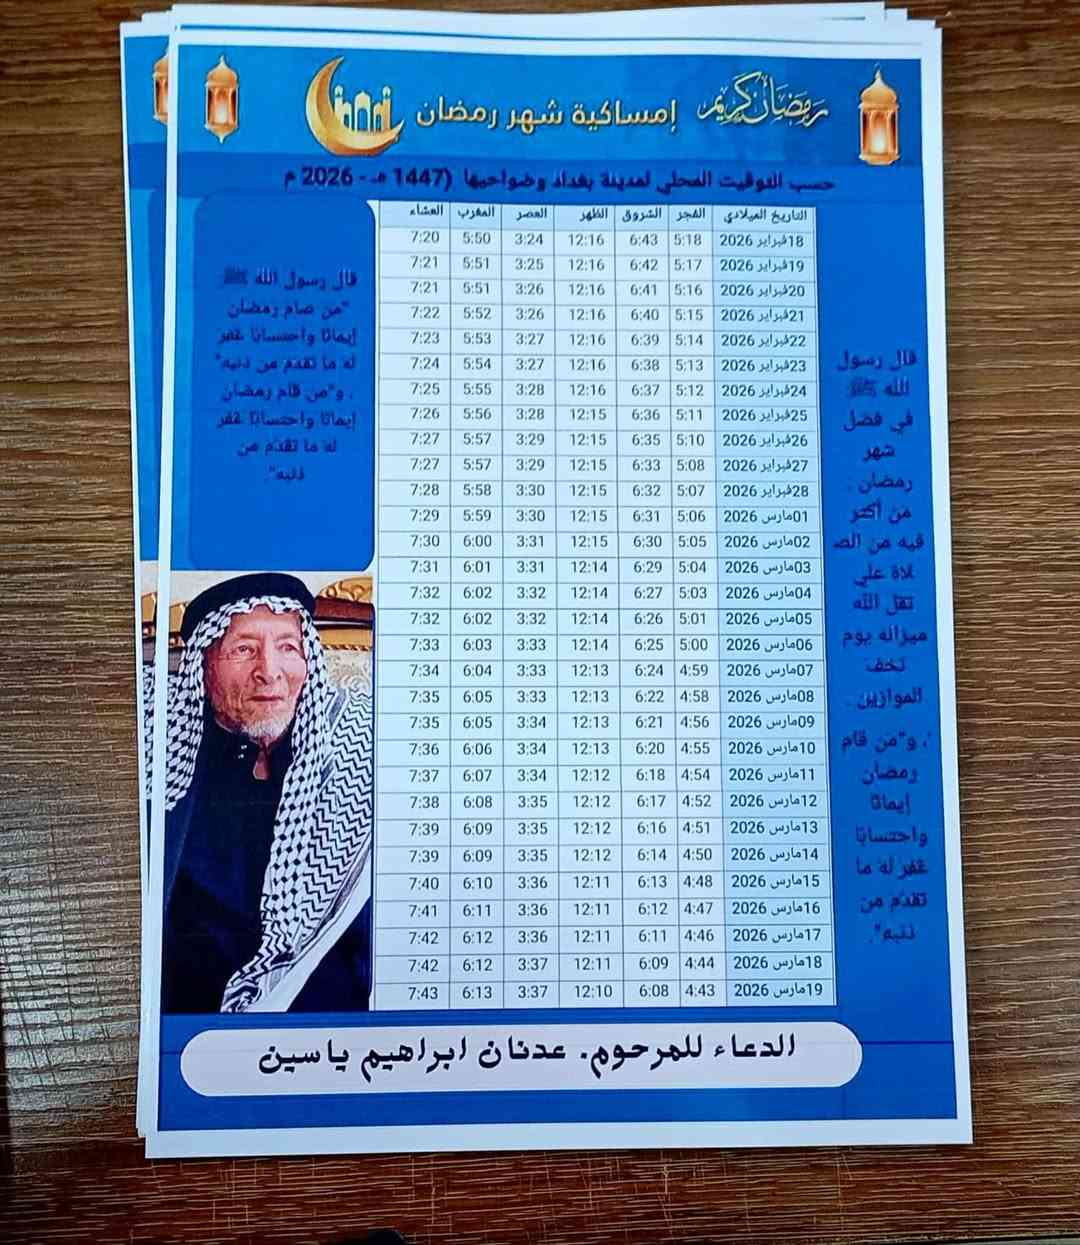 رمضان كريم
إمساكية شهر رمضان
حسب التوقيت المحلي لمدينة بغداد وضواحيها (1447 هـ - 2026 م
التاريخ الميلادي الفجر الشروق الظهر العصر المغرب العشاء
18فبراير 2026 5:18 6:43 12:16 3:24 5:50 7:20
19فبراير 2026 5:17 6:42 12:16 3:25 5:51 7:21
20فبراير 2026 5:16 6:41 12:16 3:26 5:51 7:21
21فبراير 2026 5:15 6:40 12:16 3:26 5:52 7:22
22فبراير 2026 5:14 6:39 12:16 3:27 5:53 7:23
23فبراير 2026 5:13 6:38 12:16 3:27 5:54 7:24
24فبراير 2026 5:12 6:37 12:16 3:28 5:55 7:25
25فبراير 2026 5:11 6:36 12:15 3:28 5:56 7:26
26فبراير 2026 5:10 6:35 12:15 3:29 5:57 7:27
27فبراير 2026 5:08 6:33 12:15 3:29 5:57 7:27
28فبراير 2026 5:07 6:32 12:15 3:30 5:58 7:28
01مارس 2026 5:06 6:31 12:15 3:30 5:59 7:29
02مارس 2026 5:05 6:30 12:15 3:31 6:00 7:30
03مارس 2026 5:04 6:29 12:14 3:31 6:01 7:31
04مارس 2026 5:03 6:27 12:14 3:32 6:02 7:32
05مارس 2026 5:01 6:26 12:14 3:32 6:02 7:32
06مارس 2026 5:00 6:25 12:14 3:33 6:03 7:33
07مارس 2026 4:59 6:24 12:13 3:33 6:04 7:34
08مارس 2026 4:58 6:22 12:13 3:33 6:05 7:35
09مارس 2026 4:56 6:21 12:13 3:34 6:05 7:35
10مارس 2026 4:55 6:20 12:13 3:34 6:06 7:36
11مارس 2026 4:54 6:18 12:12 3:34 6:07 7:37
12مارس 2026 4:52 6:17 12:12 3:35 6:08 7:38
13مارس 2026 4:51 6:16 12:12 3:35 6:09 7:39
14مارس 2026 4:50 6:14 12:12 3:35 6:09 7:39
15مارس 2026 4:48 6:13 12:11 3:36 6:10 7:40
16مارس 2026 4:47 6:12 12:11 3:36 6:11 7:41
17مارس 2026 4:46 6:11 12:11 3:36 6:12 7:42
18مارس 2026 4:44 6:09 12:11 3:37 6:12 7:42
19مارس 2026 4:43 6:08 12:10 3:37 6:13 7:43
قال رسول
الله ﷺ
في فضل
شهر
رمضان :
من أكثر
فيه من الص
لاة علي
ثقل الله
ميزانه يوم
تخف
الموازين .
، و"من قام
رمضان
إيمانًا
واحتسابًا
غفر له ما
تقدّم من
ذنبه".
قال رسول الله ﷺ
"من صام رمضان
إيمانًا واحتسابًا غفر
له ما تقدّم من ذنبه"
، و"من قام رمضان
إيمانًا واحتسابًا غفر
له ما تقدّم من
ذنبه".
الدعاء للمرحوم. عدنان ابراهيم ياسين